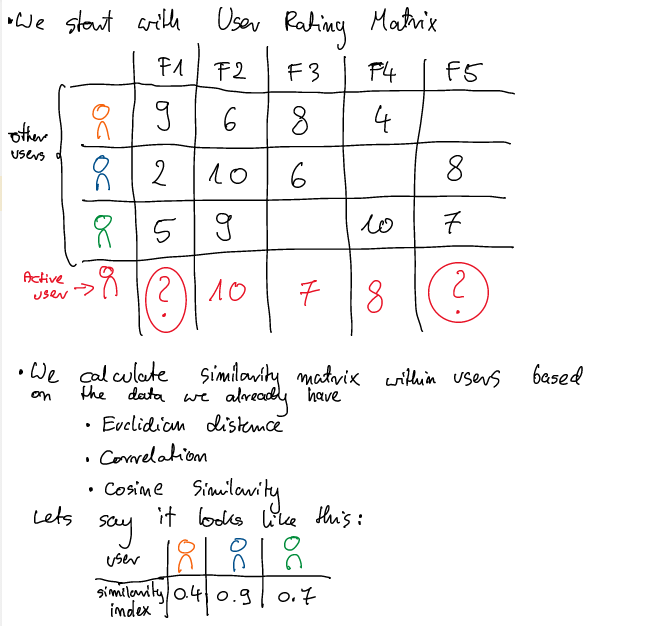 •We start with User Rating Matrix
F1 F2 F3 F4 F5
9 6 8 4
other users
2 10 6 8
5 9 10 7
Active user → ? 10 7 8 ?
• We calculate similarity matrix within users based
on the data we already have
• Euclidian distance
• Correlation
• Cosine Similarity
Lets say it looks like this:
user
similarity index 0.4 0.9 0.7